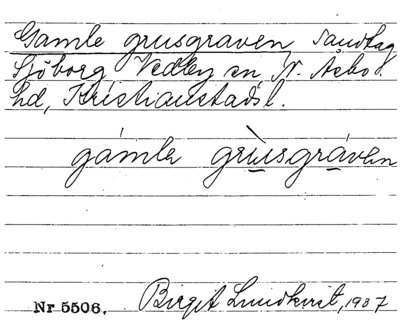 Gamle grusgraven, sandtag
Sjöborg Vedby sn, N. Åsbo
hd, Kristianstads l.
gámlə grùsgrávən
Nr 5506. Birgit Lundkvist, 1937